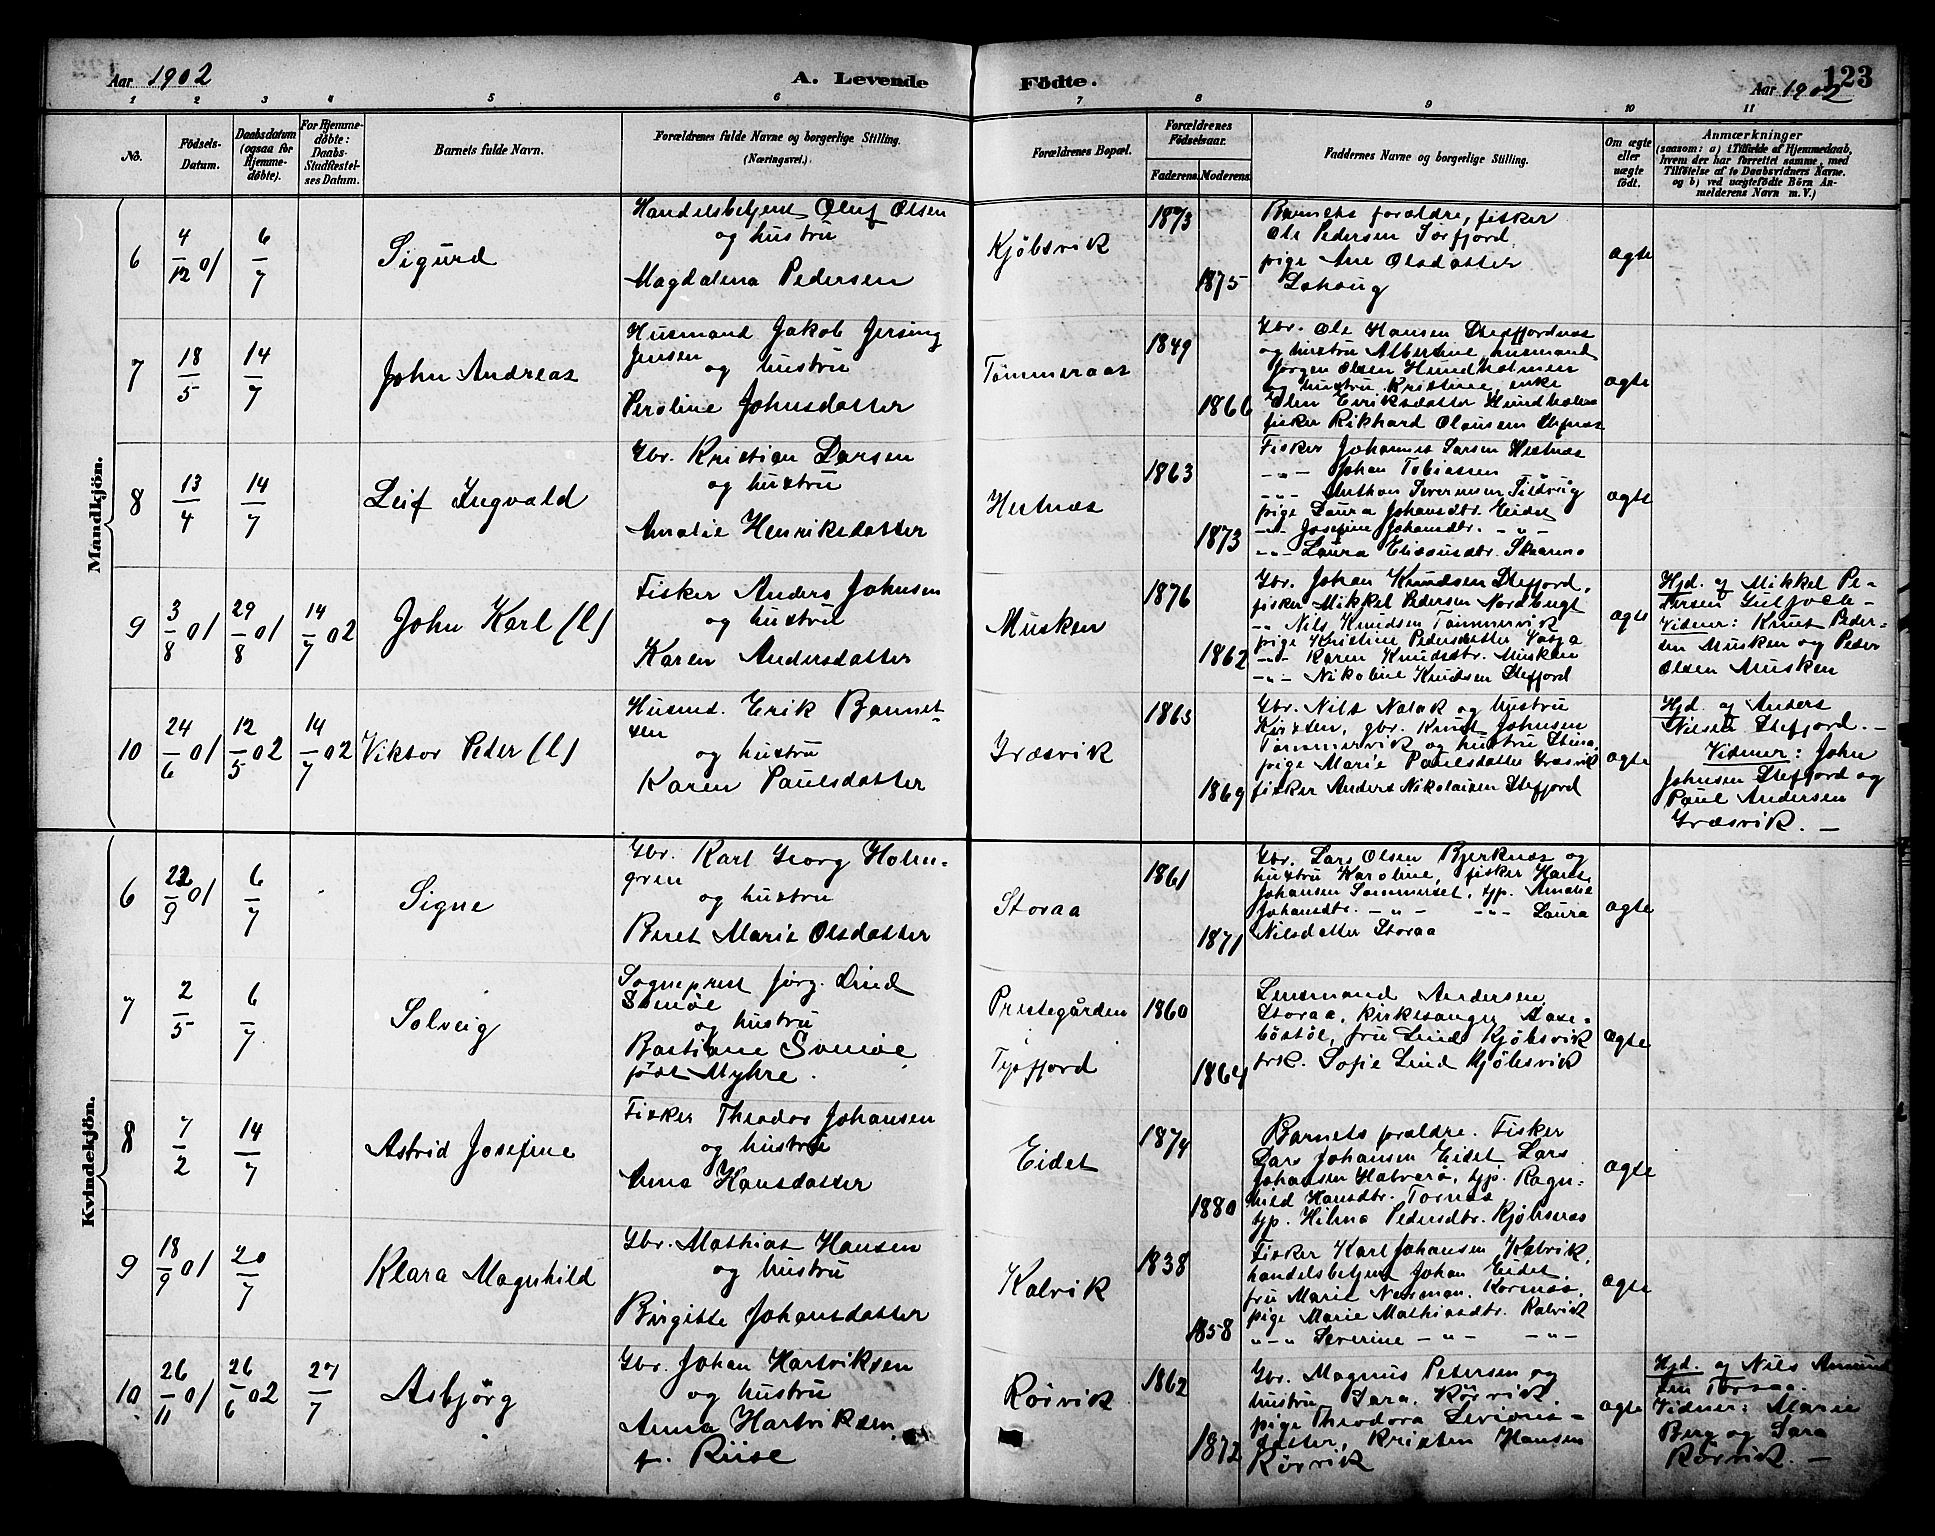 Aar 1902
A. Levende
Födte.
Aar 1902
123
1 2 3 4 5 6 7 8 9 10 11
No.
Födsels-
Datum.
Daabsdatum
(ogsaa for
Hjemme-
døbte).
For Hjemme-
døbte:
Daabs-
Stadfæstel-
ses Datum.
Barnets fulde Navn.
Forældrenes fulde Navne og borgerlige Stilling.
(Næringsvei.)
Forældrenes Bopæl.
Forældrenes
Födselsaar.
Faderens. Moderens.
Faddernes Navne og borgerlige Stilling.
Om ægte
eller
uægte
født.
Anmærkninger
(saasom: a) i Tilfælde af Hjemmedaab,
hvem der har forrettet samme, med
Tilføielse af to Daabsvidners Navne.
og b) ved uægtefødte Börn An-
melderens Navn m. V.)
Mandkjön.
6
4/12 01
6/7
Sigurd
Handelsbetjent Oluf Olsen
og hustru
Magdalena Pedersen
Kjöbsvik
1873
1875
Barnets forældre, fisker
Ole Pedersen Sørfjord
pige Ane Olsdatter
ægte
7
18/5
14/7
John Andreas
Husmand Jakob Jersing
Jensen
og hustru
Peroline Johnsdatter
Tømmeraas
1849
1866
Gbr. Ole Hansen Stefjordnes
og hustru Albertine, husmand
Jørgen Olsen Hundholmen
og hustru Kristine, enke
Elen Eriksdatter Hundholm
fisker Rikhard Olausen
ægte
8
13/4
14/7
Leif Ingvald
Gbr. Kristian Larsen
og hustru
Amalie Henriksdatter
Hestnæs
1863
1873
Fisker Johannes Larsen Hestnæs
-"- Johan Tobiassen
-"- Anthon Severinsen
pige Laura Johansdtr. Eidet
-"- Josefine Johansdtr. -"-
-"- Laura
ægte
9
3/8 01
29/8 01
14/7 02
John Karl (l)
Fisker Anders Johnsen
og hustru
Karen Andersdatter
Musken
1876
1862
Gbr. Johan Knudsen Stefjord,
fisker Mikkel Pedersen Nordbugt
-"- Nils Knudsen Tømmervik
pige Kristine Pedersdatter
-"- Karen Knudsdtr. Musken
-"- Nikoline Knudsen Stefjord
ægte
Hjd. af Mikkel Pe-
dersen
Vidner: Knut Peder-
sen Musken og Peder
Olsen Musken
10
24/6 01
12/5 02
14/7 02
Viktor Peder (l)
Husmd. Erik Bannet-
sen
og hustru
Karen Paulsdatter
Græsvik
1863
1869
Gbr. Nils Nalak og hustru
Kirsten, gbr. Knut Johnsen
Tømmervik og hustru Stina,
pige Marie Paulsdatter Græsvik
fisker Anders Nikolaisen Stefjord
ægte
Hjd. af Anders
Nilsen Stefjord. –
Vidner: John
Johnsen Stefjord og
Paul Andersen
Græsvik. –
Kvindekjön.
6
22/9 01
6/7
Signe
Gbr. Karl Georg Holm-
gren
og hustru
Beret Marie Olsdatter
Storaa
1861
1871
Gbr. Lars Olsen Bjerknæs og
hustru Karoline, fisker Hans
Johansen Sommerset, tjp. Amalie
Johansdtr. -"- -"- Laura
Nilsdatter Storaa
ægte
7
2/5
6/7
Solveig
Sogneprest Jörg. Lind
Svenöe
og hustru
Bastiane Svenöe
født Myhre.
Prestegården
Tysfjord
1860
1864
Lensmand Andersen
Storaa, kirkesanger Aase-
böstöl, fru Lind Kjöbsvik
frk. Sofie Lind Kjöbsvik
ægte
8
7/2
14/7
Astrid Josefine
Fisker Theodor Johansen
og hustru
Anna Hansdatter
Eidet
1874
1880
Barnets forældre. Fisker
Lars Johansen Eidet Lars
Johansen Halverö, tjp. Ragn-
hild Hansdtr. Tornæs
tjp. Hilma Pedersdtr. Kjöbsnes
ægte
9
18/9 01
20/7
Klara Magnhild
Gbr. Mathias Hansen
og hustru
Birgitte Johansdatter
Kalvik
1838
1858
Fisker Karl Johansen Kalvik,
handelsbetjent Johan Eidet,
fru Marie Norman, Kornæs,
pige Marie Mathiasdtr. Kalvik
-"- Severine -"- -"-
ægte
10
26/11 01
26/6 02
27/7
Asbjörg
Gbr. Johan Hartviksen
og hustru
Anna Hartviksen
f. Riise
Rörvik
1862
1872
Gbr. Magnus Petersen og
hustru Sara, Rörvik
pige Theodora
datter, Kristen Hansen
Rörvik
ægte
Hjd. af Nils Amund
sen
Vidner: Marie
Berg og Sara
Rörvik. –